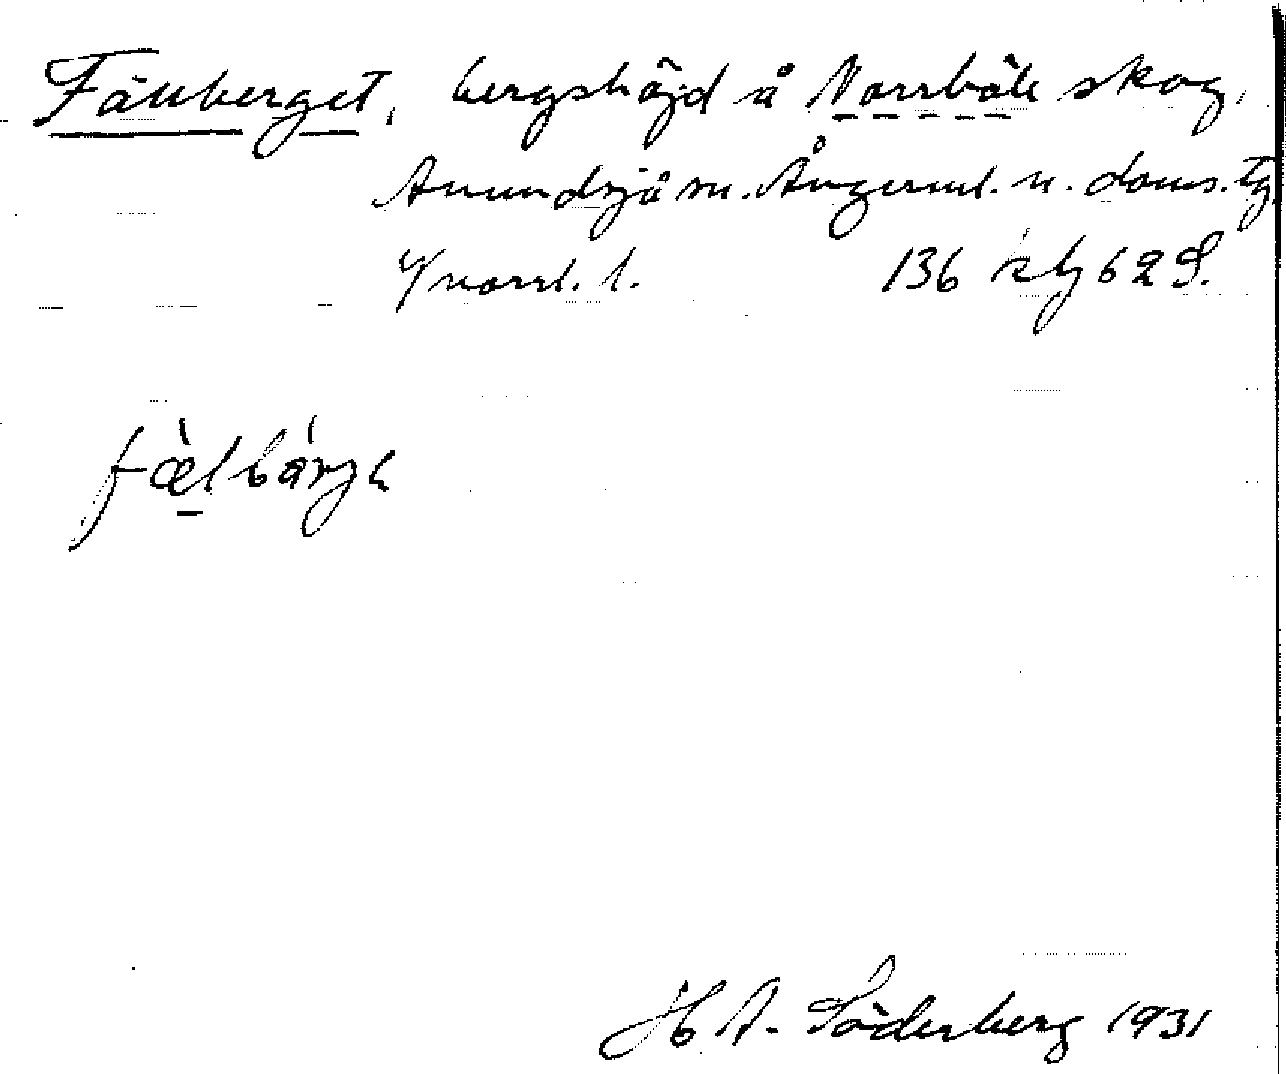 Fällberget, bergshöjd å Norrböle skog,
Anundsjö sn. Ångerml. n. doms. tg
V/norrl. l. 136 62 S.
fælbárjɩ
H A. Söderberg 1931